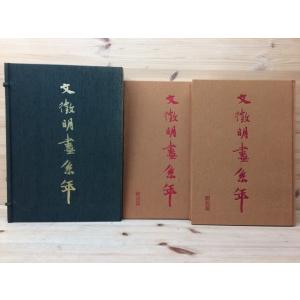 文徵明畫系年
文徵明畫系年
文徵明畫系年